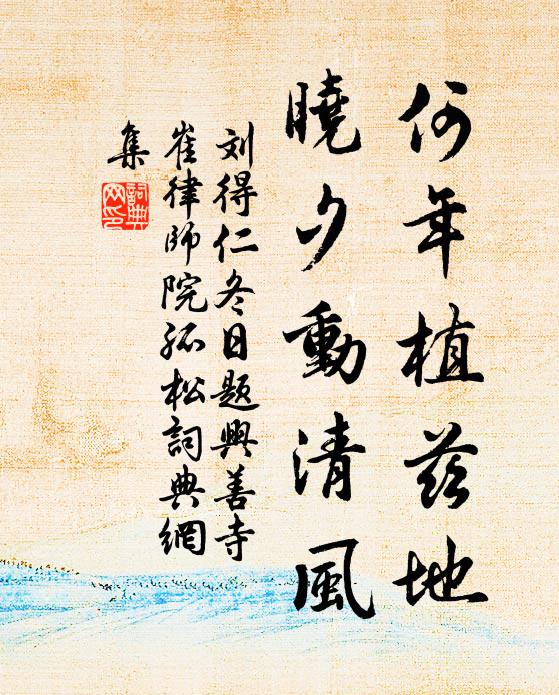 何年植茲地
曉夕動清風
刘得仁冬日題興善寺
崔律師院孤松詞典網
集
詞典
网印